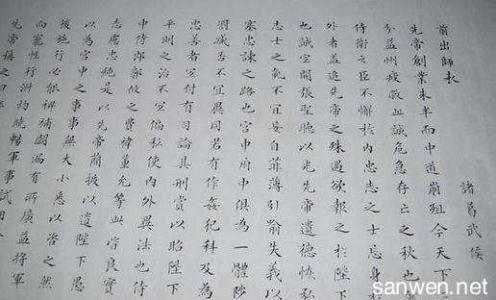 前出師表
諸葛武侯
先帝創業未半而中道崩殂今天下
分益州疲敝此誠危急存亡之秋也
侍衛之臣不懈於內忠志之士忘身
外者蓋追先帝之殊遇欲報之於陛下
也誠宜開張聖聽以光先帝遺德恢弘
志士之氣不宜妄自菲薄引喻失義以
塞忠諫之路也宮中府中俱為一體陟
罰臧否不宜異同若有作姦犯科及為
忠善者宜付有司論其刑賞以昭陛下
平明之治不宜偏私使內外異法也侍
中侍郎郭攸之費禕董允等此皆良實
志慮忠純是以先帝簡拔以遺陛下愚
以為宮中之事事無大小悉以咨之然
後施行必能裨補闕漏有所廣益將軍
向寵性行淑均曉暢軍事試用
先帝稱之曰
sanwen.net